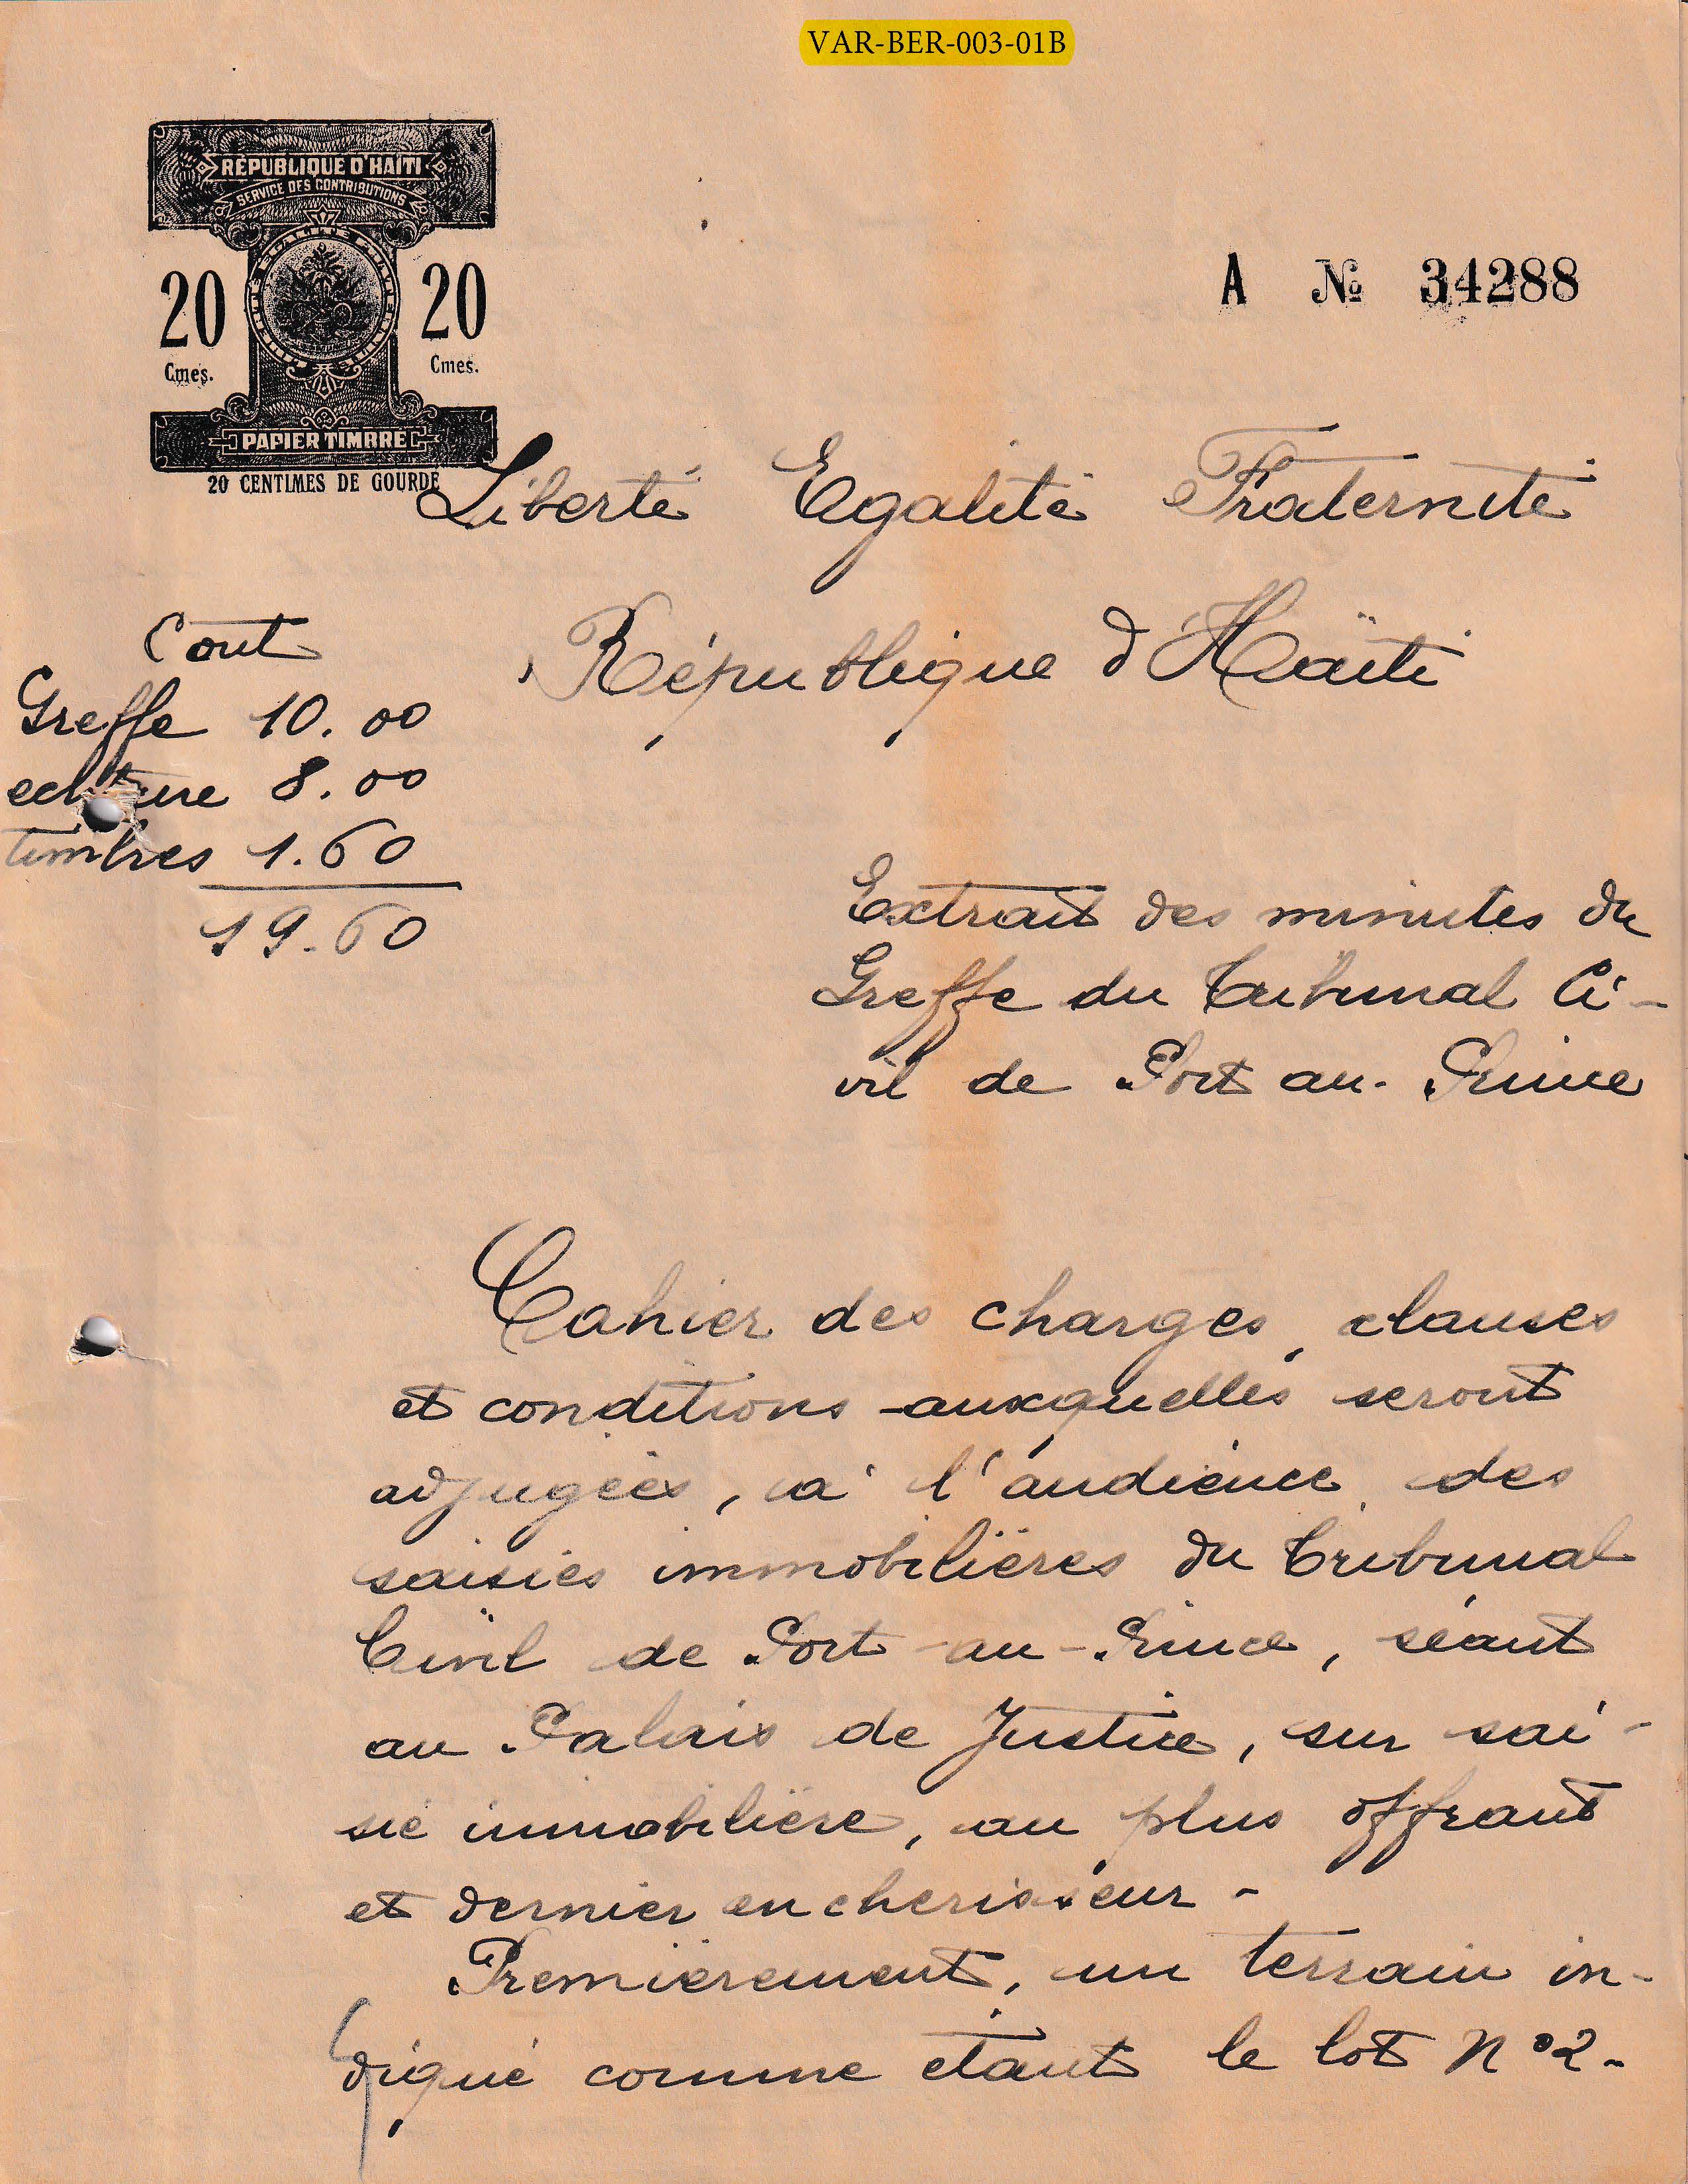 VAR-BER-003-01B
RÉPUBLIQUE D'HAÏTI
SERVICE DES CONTRIBUTIONS
20 20
Cmes. Cmes.
PAPIER TIMBRE
20 CENTIMES DE GOURDE
A № 34288
Liberté Egalité Fraternité
République d'Haïti
Cout
Greffe 10.00
timbres 1.60
8.00
19.60
Extrait des minutes du
Greffe du Tribunal Ci-
vil de Port au-Prince
Cahier des charges, clauses
et conditions auxquelles seront
adjugées, à l'audience des
saisies immobilières du Tribunal
Civil de Port-au-Prince, séant
au Palais de Justice, sur sai-
sie immobilière, au plus offrant
et dernier encherisseur -
Premièrement, un terrain in-
diqué comme étant le lot No 2-